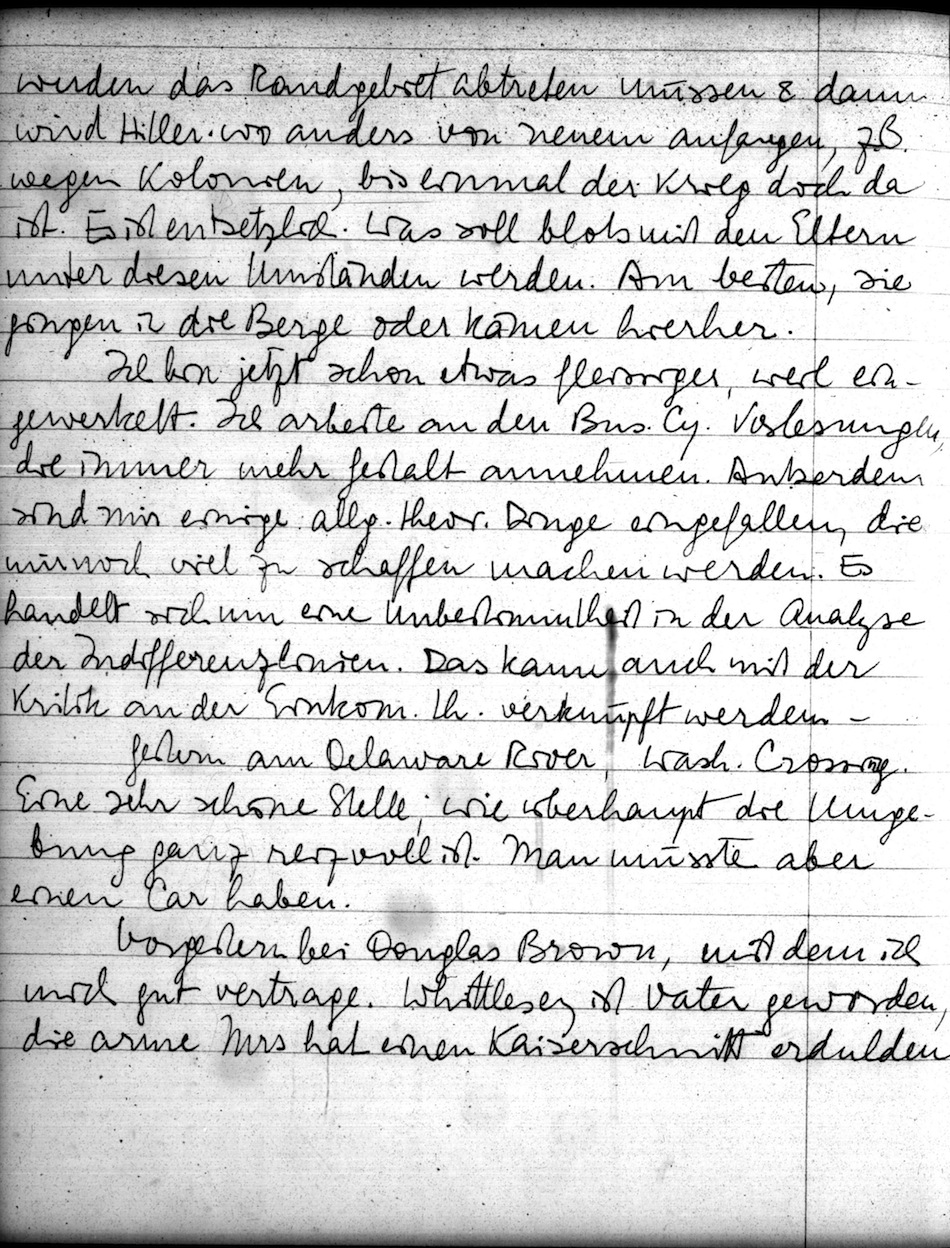 werden das Randgebiet abtreten müssen & dann
wird Hitler wo anders von neuem anfangen, z.B.
wegen Kolonien, bis einmal der Krieg doch da
ist. Es ist entsetzlich. Was soll blos mit den Eltern
unter diesen Umständen werden. Am besten, sie
gingen in die Berge oder kämen hierher.
Ich bin jetzt schon etwas fleissiger, weil ein-
gewerkelt. Ich arbeite an den Bus. Cy. Vorlesungen,
die immer mehr Gestalt annehmen. Ausserdem
sind mir einige allg. theor. Dinge eingefallen, die
mir noch viel zu schaffen machen werden. Es
handelt sich um eine Unbestimmtheit in der Analyse
der Indifferenzlinien. Das kann auch mit der
Kritik an der Einkom. th. verknüpft werden –
Gestern am Delaware River, Wash. Crossing.
Eine sehr schöne Stelle, wie überhaupt die Umge-
bung ganz reizvoll ist. Man müsste aber
einen Car haben.
Vorgestern bei Douglas Brown, mit dem ich
mich gut vertrage. Whittlesey ist Vater geworden,
die arme Mrs hat einen Kaiserschnitt erdulden